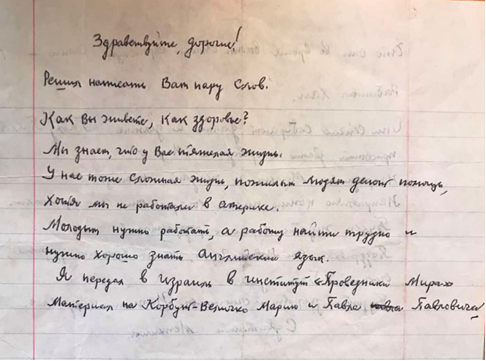 Здравствуйте, дорогие!
Решил написать Вам пару Слов.
Как Вы живете, как здоровье?
Мы знаем, что у Вас тяжелая жизнь.
У нас тоже сложная жизнь, пожилым людям делают помощь,
хотя мы не работали в америке.
Молодым нужно работать, а работу найти трудно и
нужно хорошо знать Английский язык.
Я передал в израиль в институт "Праведники Мира"
материал на Корбут-Величко Марию и Павла Павловича